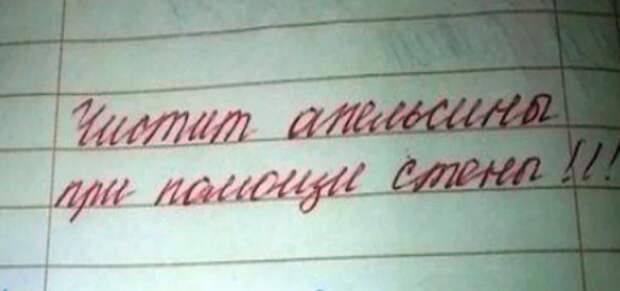 Чистит апельсины
при помощи стены!!!